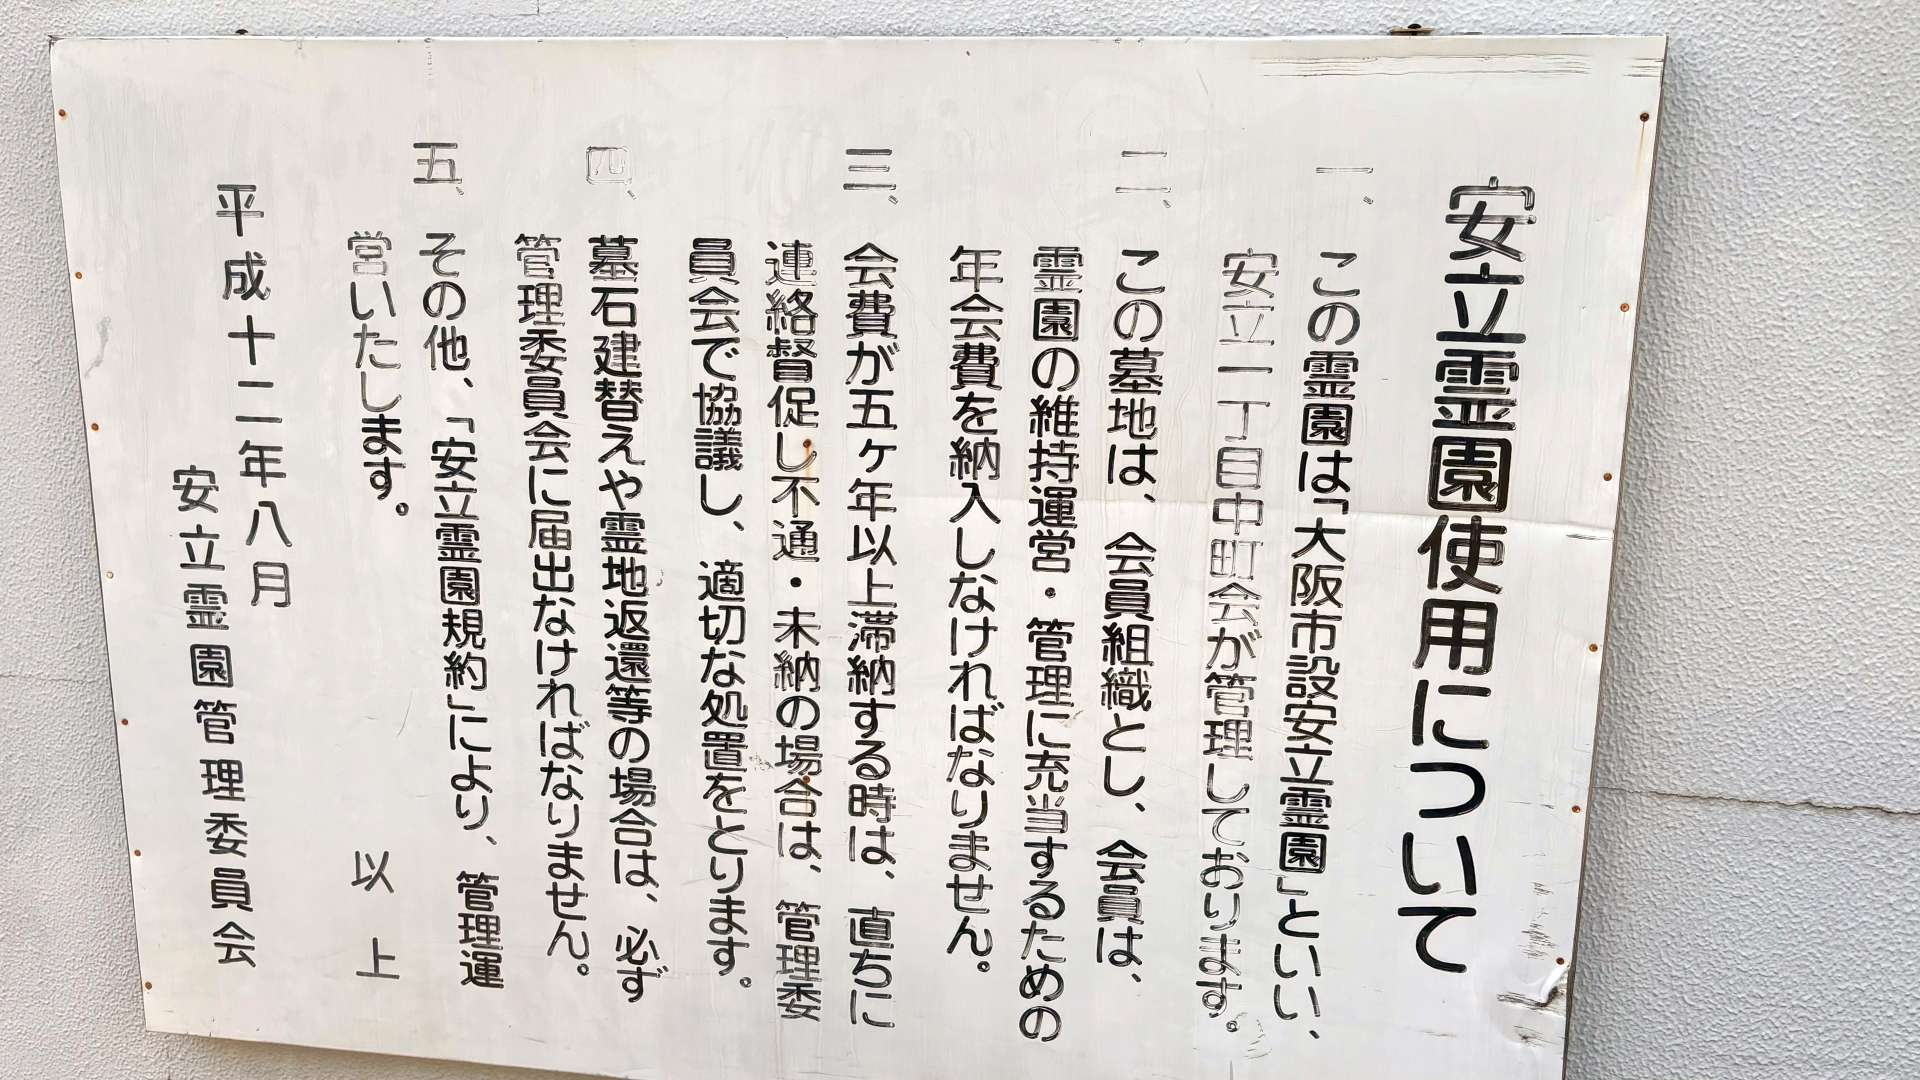 安立霊園使用について
一、この霊園は「大阪市設安立霊園」といい、
安立一丁目中町会が管理しております。
二、この墓地は、会員組織とし、会員は、
霊園の維持運営・管理に充当するための
年会費を納入しなければなりません。
三、会費が五ヶ年以上滞納する時は、直ちに
連絡督促し不通・未納の場合は、管理委
員会で協議し、適切な処置をとります。
四、墓石建替えや霊地返還等の場合は、必ず
管理委員会に届出なければなりません。
五、その他、「安立霊園規約」により、管理運
営いたします。
以上
平成十二年八月
安立霊園管理委員会